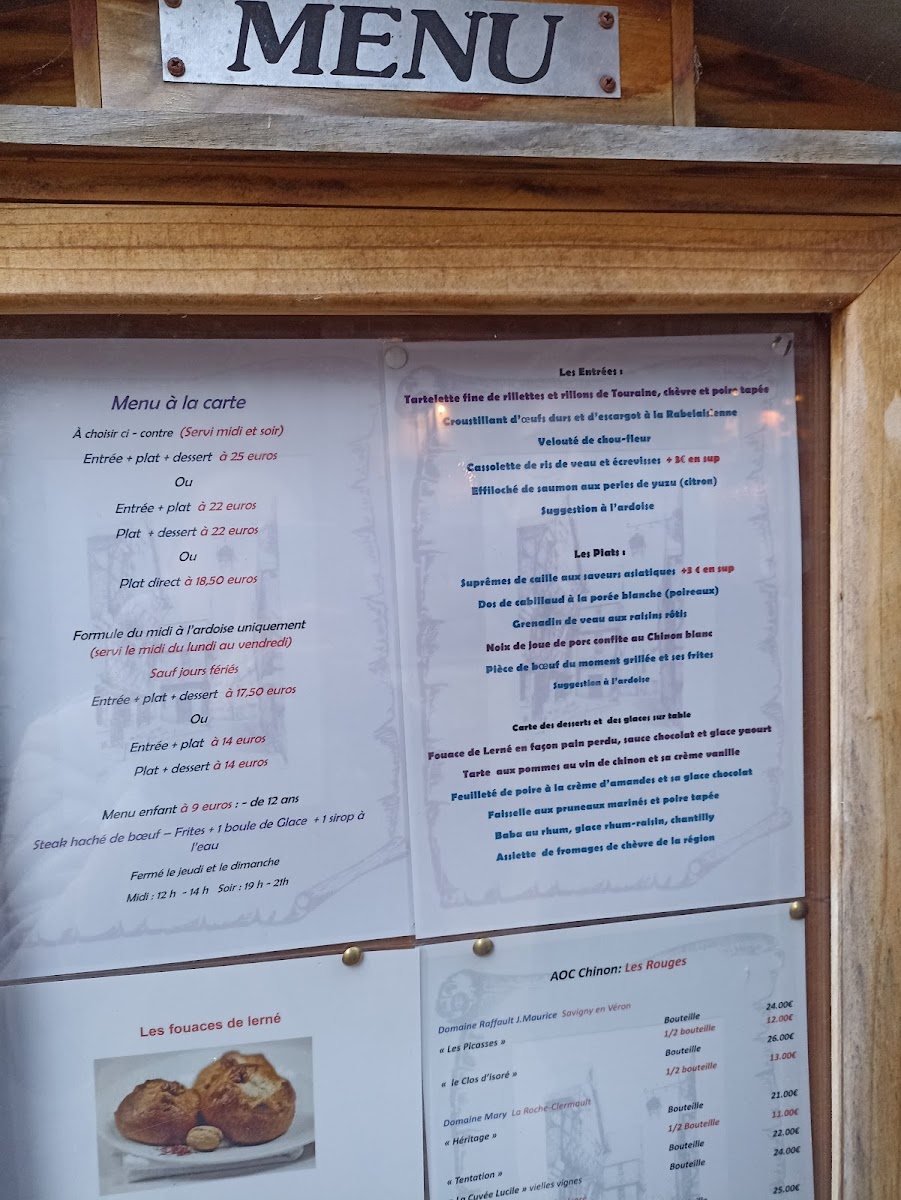 MENU
Menu à la carte
À choisir ci - contre (Servi midi et soir)
Entrée + plat + dessert à 25 euros
Ou
Entrée + plat à 22 euros
Plat + dessert à 22 euros
Ou
Plat direct à 18,50 euros
Formule du midi à l'ardoise uniquement
(servi le midi du lundi au vendredi)
Sauf jours fériés
Entrée + plat + dessert à 17,50 euros
Ou
Entrée + plat à 14 euros
Plat + dessert à 14 euros
Menu enfant à 9 euros : - de 12 ans
Steak haché de bœuf – Frites + 1 boule de Glace + 1 sirop à
l'eau
Fermé le jeudi et le dimanche
Midi : 12 h - 14 h Soir : 19 h - 21h
Les Entrées :
Tartelette fine de rillettes et rillons de Touraine, chèvre et poire tapée
Croustillant d'œufs durs et d'escargot à la Rabelaisienne
Velouté de chou-fleur
Cassolette de ris de veau et écrevisses + 3€ en sup
Effiloché de saumon aux perles de yuzu (citron)
Suggestion à l'ardoise
Les Plats :
Suprêmes de caille aux saveurs asiatiques +3 € en sup
Dos de cabillaud à la porée blanche (poireaux)
Grenadin de veau aux raisins rôtis
Noix de joue de porc confite au Chinon blanc
Pièce de bœuf du moment grillée et ses frites
Suggestion à l'ardoise
Carte des desserts et des glaces sur table
Fouace de Lerné en façon pain perdu, sauce chocolat et glace yaourt
Tarte aux pommes au vin de chinon et sa crème vanille
Feuilleté de poire à la crème d'amandes et sa glace chocolat
Faisselle aux pruneaux marinés et poire tapée
Baba au rhum, glace rhum-raisin, chantilly
Assiette de fromages de chèvre de la région
Les fouaces de lerné
AOC Chinon: Les Rouges
Domaine Raffault J.Maurice Savigny en Véron
« Les Picasses » Bouteille 24.00€
1/2 bouteille 12.00€
« le Clos d'isoré » Bouteille 26.00€
1/2 bouteille 13.00€
Domaine Mary La Roche-Clermault
« Héritage » Bouteille 21.00€
1/2 Bouteille 11.00€
« Tentation » Bouteille 22.00€
« La Cuvée Lucile » vielles vignes Bouteille 24.00€
25.00€